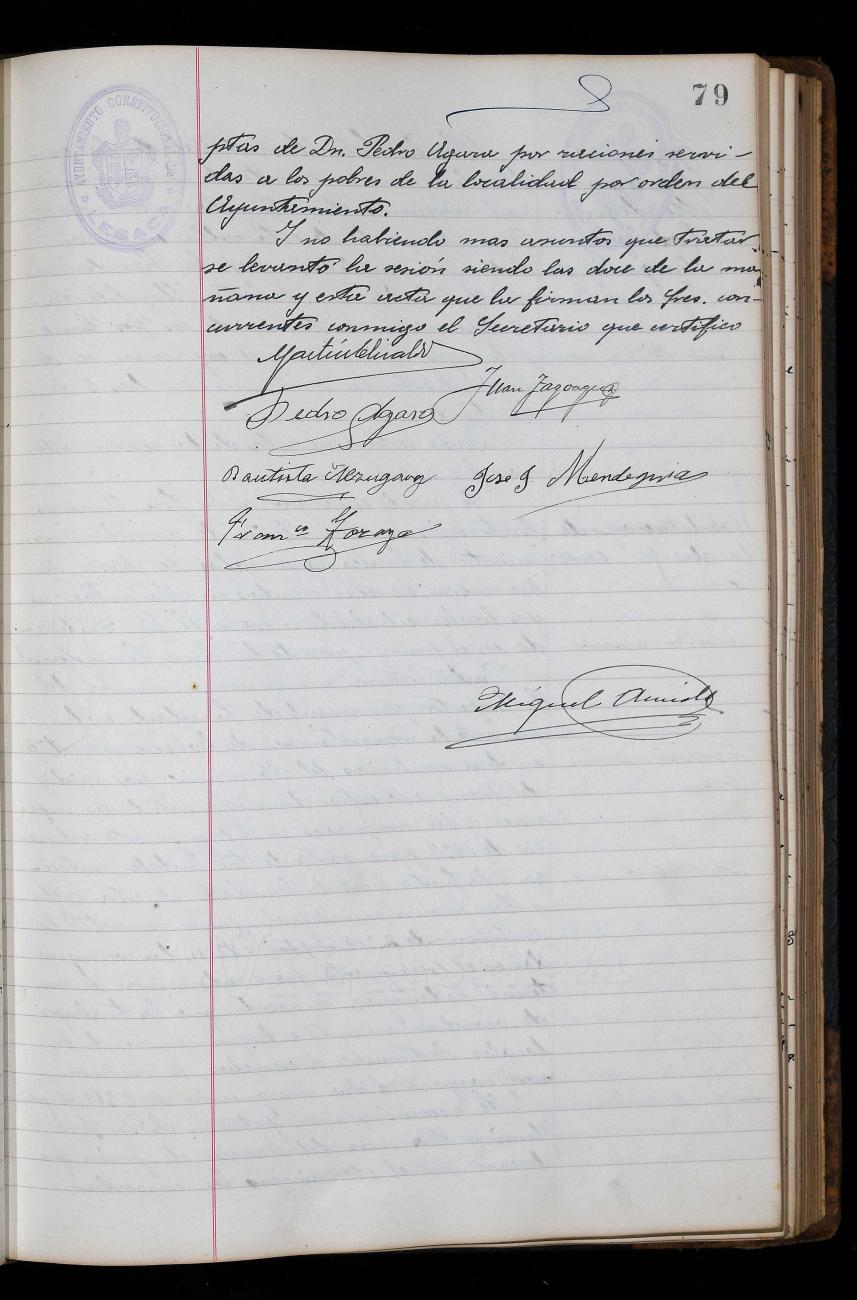 79
AYUNTAMIENTO CONSTITUCIONAL DE
LESACA
ptas de Dn. Pedro Agara por raciones servi-
das a los pobres de la localidad por orden del
Ayuntamiento.
Y no habiendo mas asuntos que tratar
se levantó la sesión siendo las doce de la ma
ñana y esta acta que la firman los Sres. con-
currentes conmigo el Secretario que certifico
Martin
Juan
Pedro Agara
Bautista José J. Mendeguia
Franco
Miguel